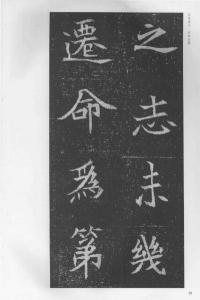 之志未幾
遷命爲第